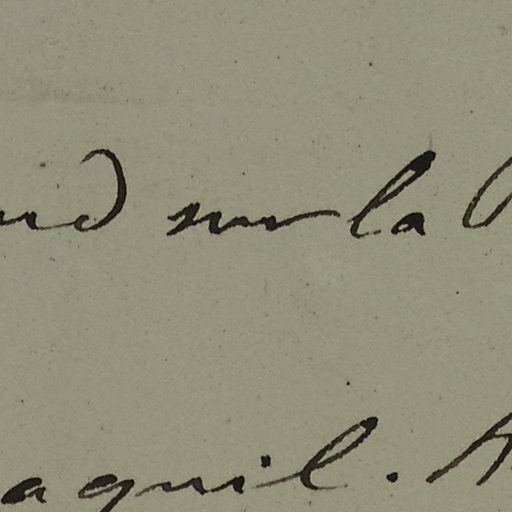 nd sur la
aquil.